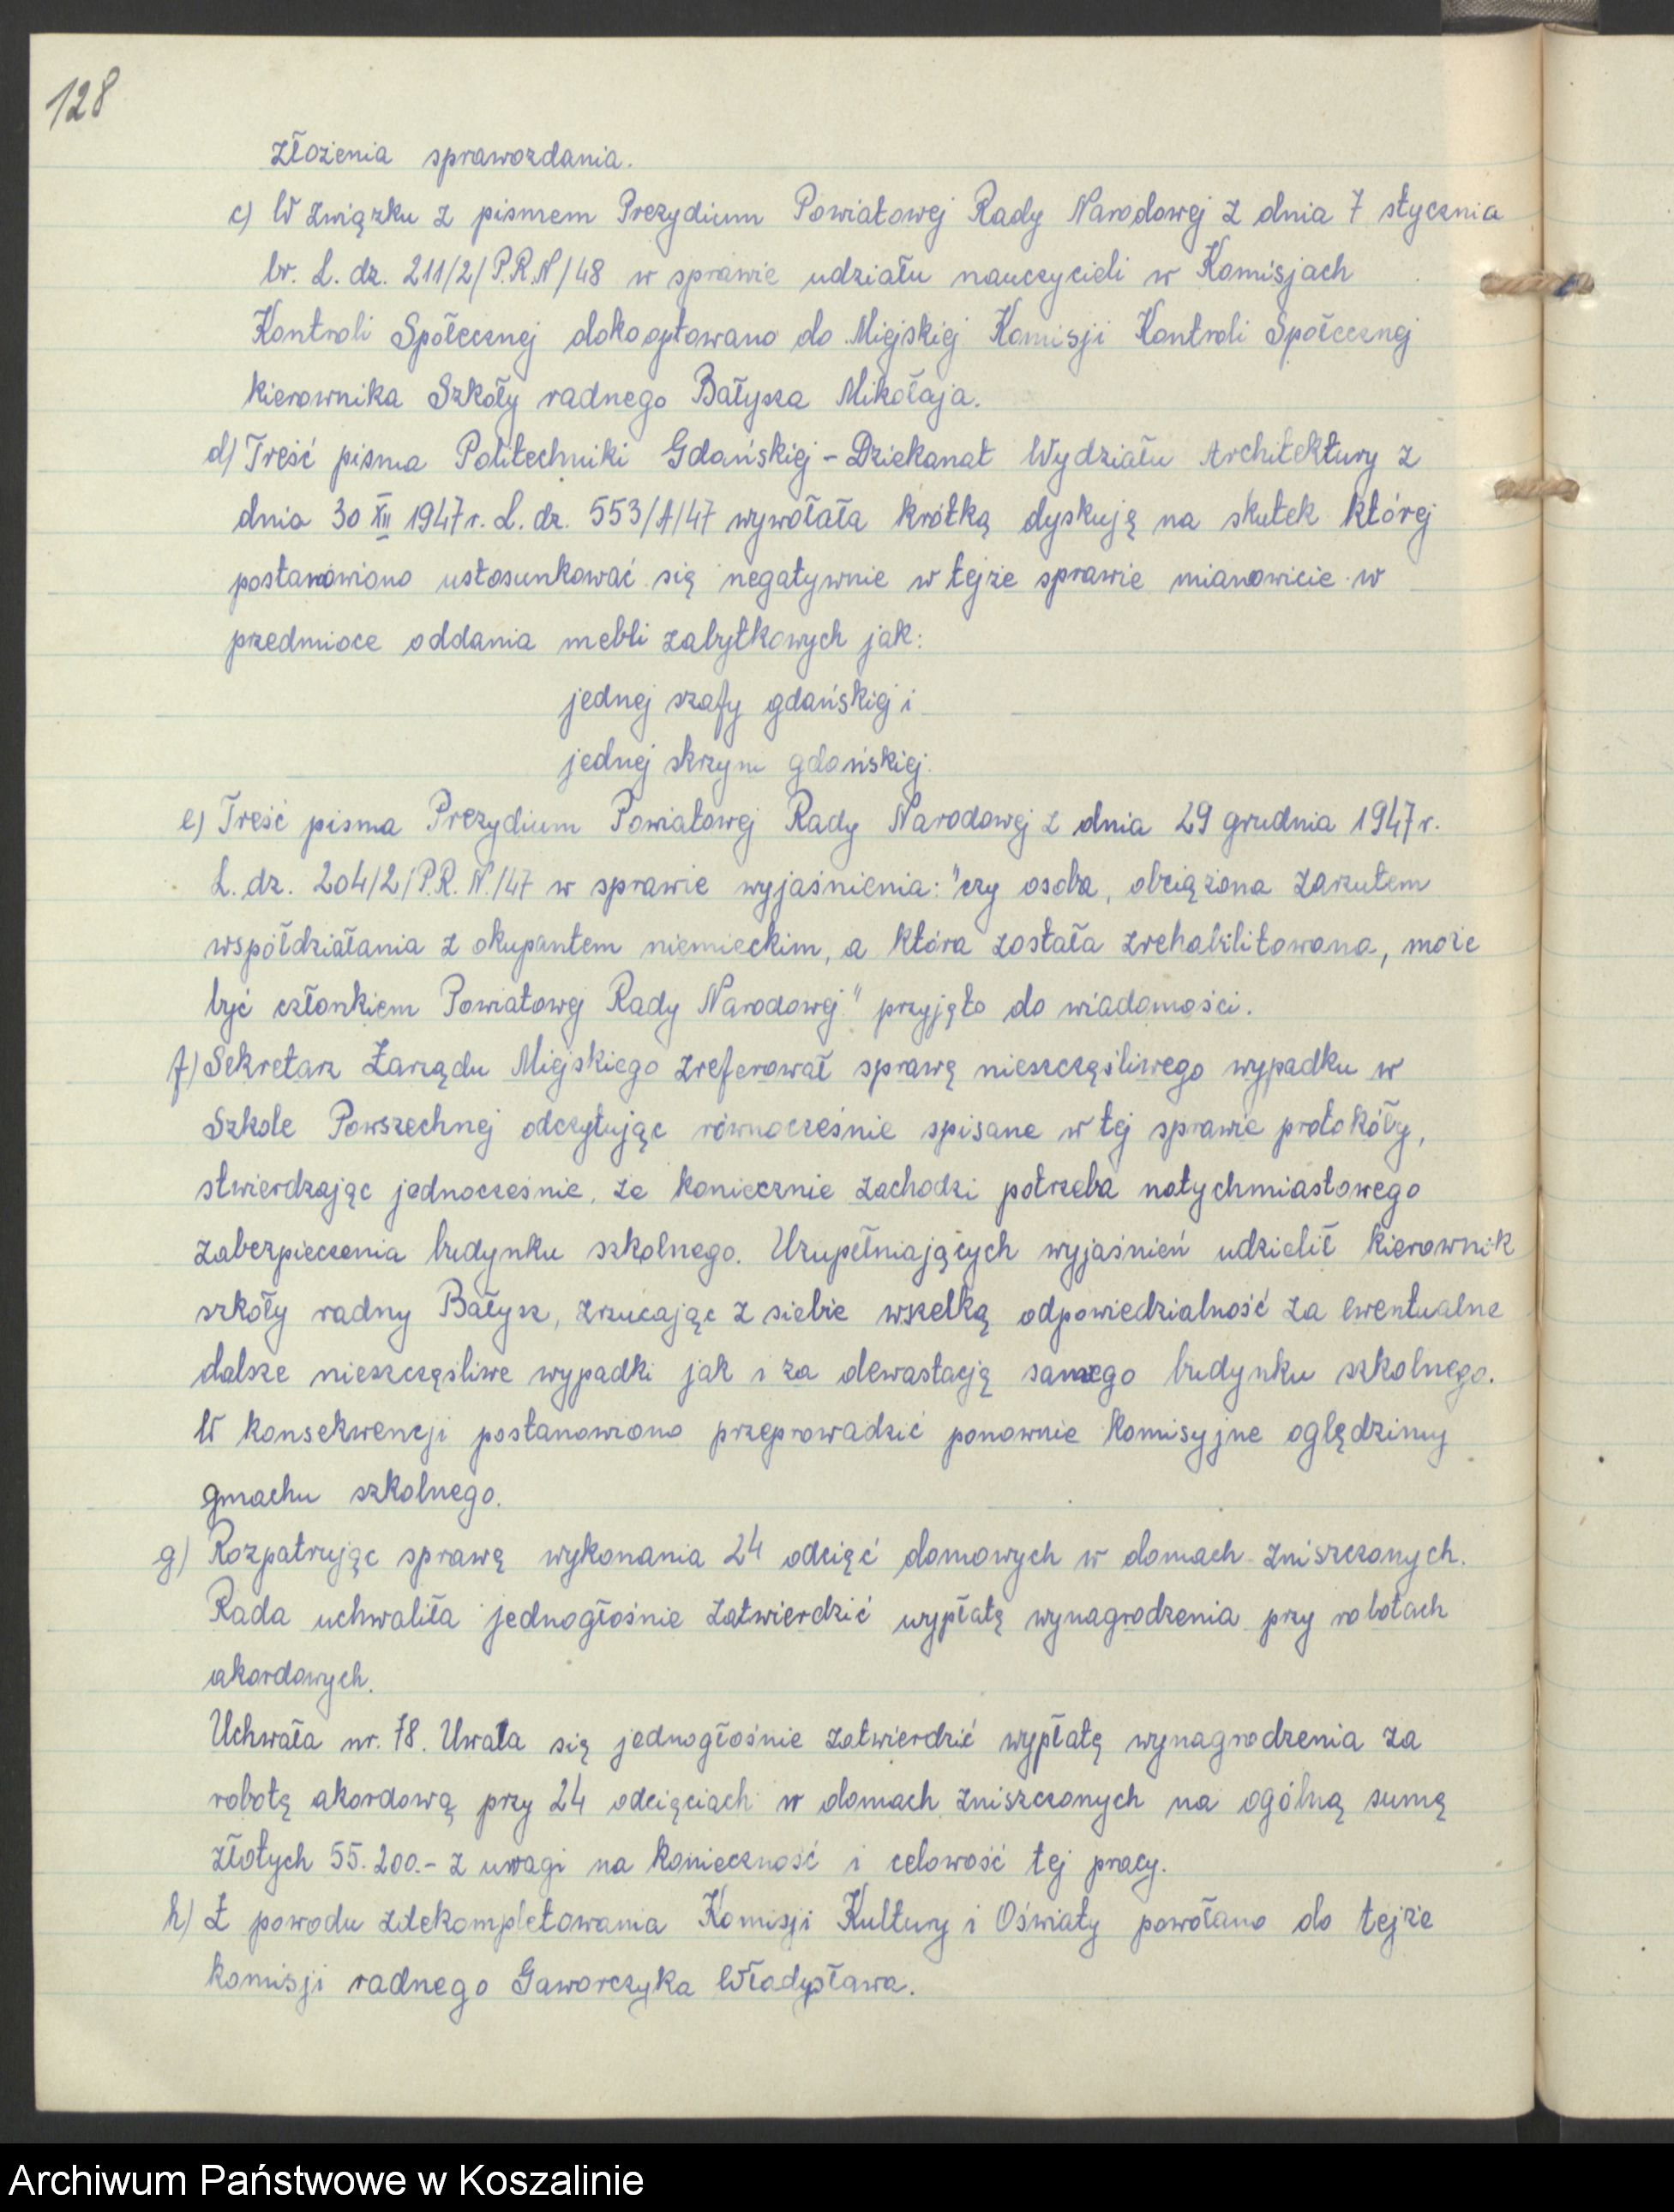 128
złożenia sprawozdania.
c) W związku z pismem Prezydium Powiatowej Rady Narodowej z dnia 7 stycznia
br. L. dz. 211/2/P.R.N/48 w sprawie udziału nauczycieli w Komisjach
Kontroli Społecznej dokooptowano do Miejskiej Komisji Kontroli Społecznej
kierownika Szkoły radnego Bałysza Mikołaja.
d) Treść pisma Politechniki Gdańskiej – Dziekanat Wydziału Architektury z
dnia 30 XII 1947 r. L. dz. 553/A/47 wywołała krótką dyskują na skutek której
postanowiono ustosunkować się negatywnie w tejże sprawie mianowicie w
przedmioce oddania mebli zabytkowych jak:
jednej szafy gdańskiej i
jednej skrzyni gdańskiej.
e) Treść pisma Prezydium Powiatowej Rady Narodowej z dnia 29 grudnia 1947 r.
L. dz. 204/2/P.R.N./47 w sprawie wyjaśnienia: "czy osoba, obciążona zarzutem
współdziałania z okupantem niemieckim, a która została zrehabilitowana, może
być członkiem Powiatowej Rady Narodowej" przyjęto do wiadomości.
f) Sekretarz Zarządu Miejskiego zreferował sprawę nieszczęśliwego wypadku w
Szkole Powszechnej odczytując równocześnie spisane w tej sprawie protokóły,
stwierdzając jednocześnie, że koniecznie zachodzi potrzeba natychmiastowego
zabezpieczenia budynku szkolnego. Uzupełniających wyjaśnień udzielił kierownik
szkoły radny Bałysz, zrzucając z siebie wszelką odpowiedzialność za ewentualne
dalsze nieszczęśliwe wypadki jak i za dewastację samego budynku szkolnego.
W konsekwencji postanowiono przeprowadzić ponownie komisyjne oględziny
gmachu szkolnego.
g) Rozpatrując sprawę wykonania 24 odcięć domowych w domach zniszczonych.
Rada uchwaliła jednogłośnie zatwierdzić wypłatę wynagrodzenia przy robotach
akordowych.
Uchwała nr. 78. Uwala się jednogłośnie zatwierdzić wypłatę wynagrodzenia za
robotę akordową przy 24 odcięciach w domach zniszczonych na ogólną sumę
złotych 55.200.- z uwagi na konieczność i celowość tej pracy.
h) Z powodu zdekompletowania Komisji Kultury i Oświaty powołano do tejże
komisji radnego Gaworczyka Władysława.
Archiwum Państwowe w Koszalinie